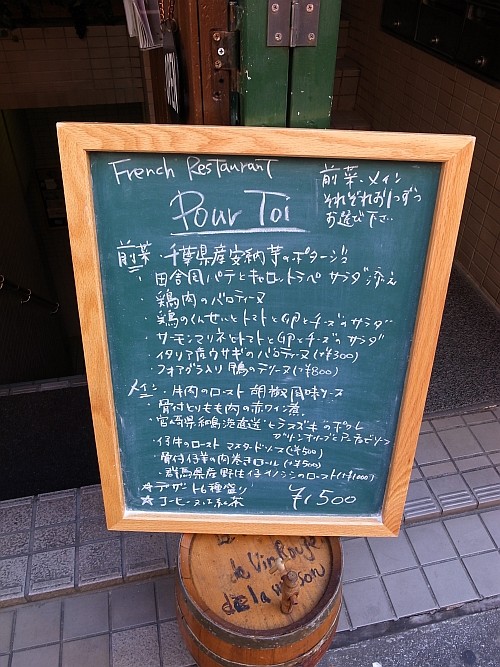 French Restaurant
Pour Toi
前菜・メイン
それぞれお1つずつ
お選び下さい
前菜・千葉県産安納芋のポタージュ
・田舎風パテとキャロットラペ サラダ添え
・鶏肉のバロティーヌ
・鶏のくんせいとトマトとGPとチーズのサラダ
・サーモンマリネとトマトとGPとチーズのサラダ
・イタリア産ウサギのバロティーヌ(+¥300)
・フォアグラ入り鴨のテリーヌ(+¥800)
メイン・牛肉のロースト 胡椒風味ソース
・骨付とりもも肉の赤ワイン煮
・宮崎県 直送ヒラスズキのポワレ
グリーンオリーブとアンチョビソース
・仔牛のロースト マスタードソース(+¥500)
・骨付仔羊の肉巻きロール(+¥500)
・群馬県産野生イノシシのロースト(+¥1000)
☆デザート6種盛り
☆コーヒー又は紅茶
¥1500
de Vin Rouge
de la maison